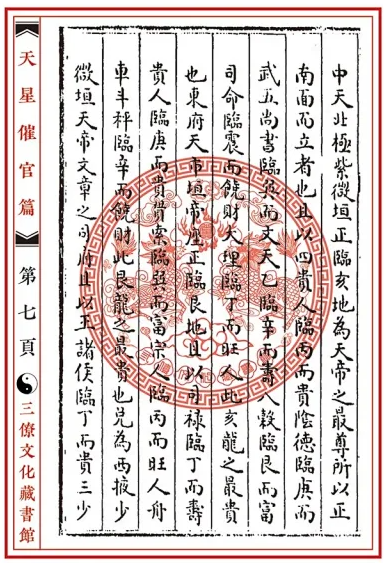 中天北極紫微垣正臨亥地為天帝之最尊所以正
南面而立者也且以四貴人臨丙而貴陰德臨庚而
武五尚書臨巽而文天乙臨辛而壽八穀臨艮而富
司命臨震而饒財大理臨丁而旺人此亥龍之最貴
也東府天市垣帝座正臨艮地且以司祿臨丁而壽
貴人臨庚而貴貫索臨巽而富宗人臨丙而旺人舟
車斗秤臨辛而饒財此艮龍之最貴也兌為西掖少
微垣天帝文章之司府且以五諸侯臨丁而貴三少
天星催官篇
第七頁
三僚文化藏書館